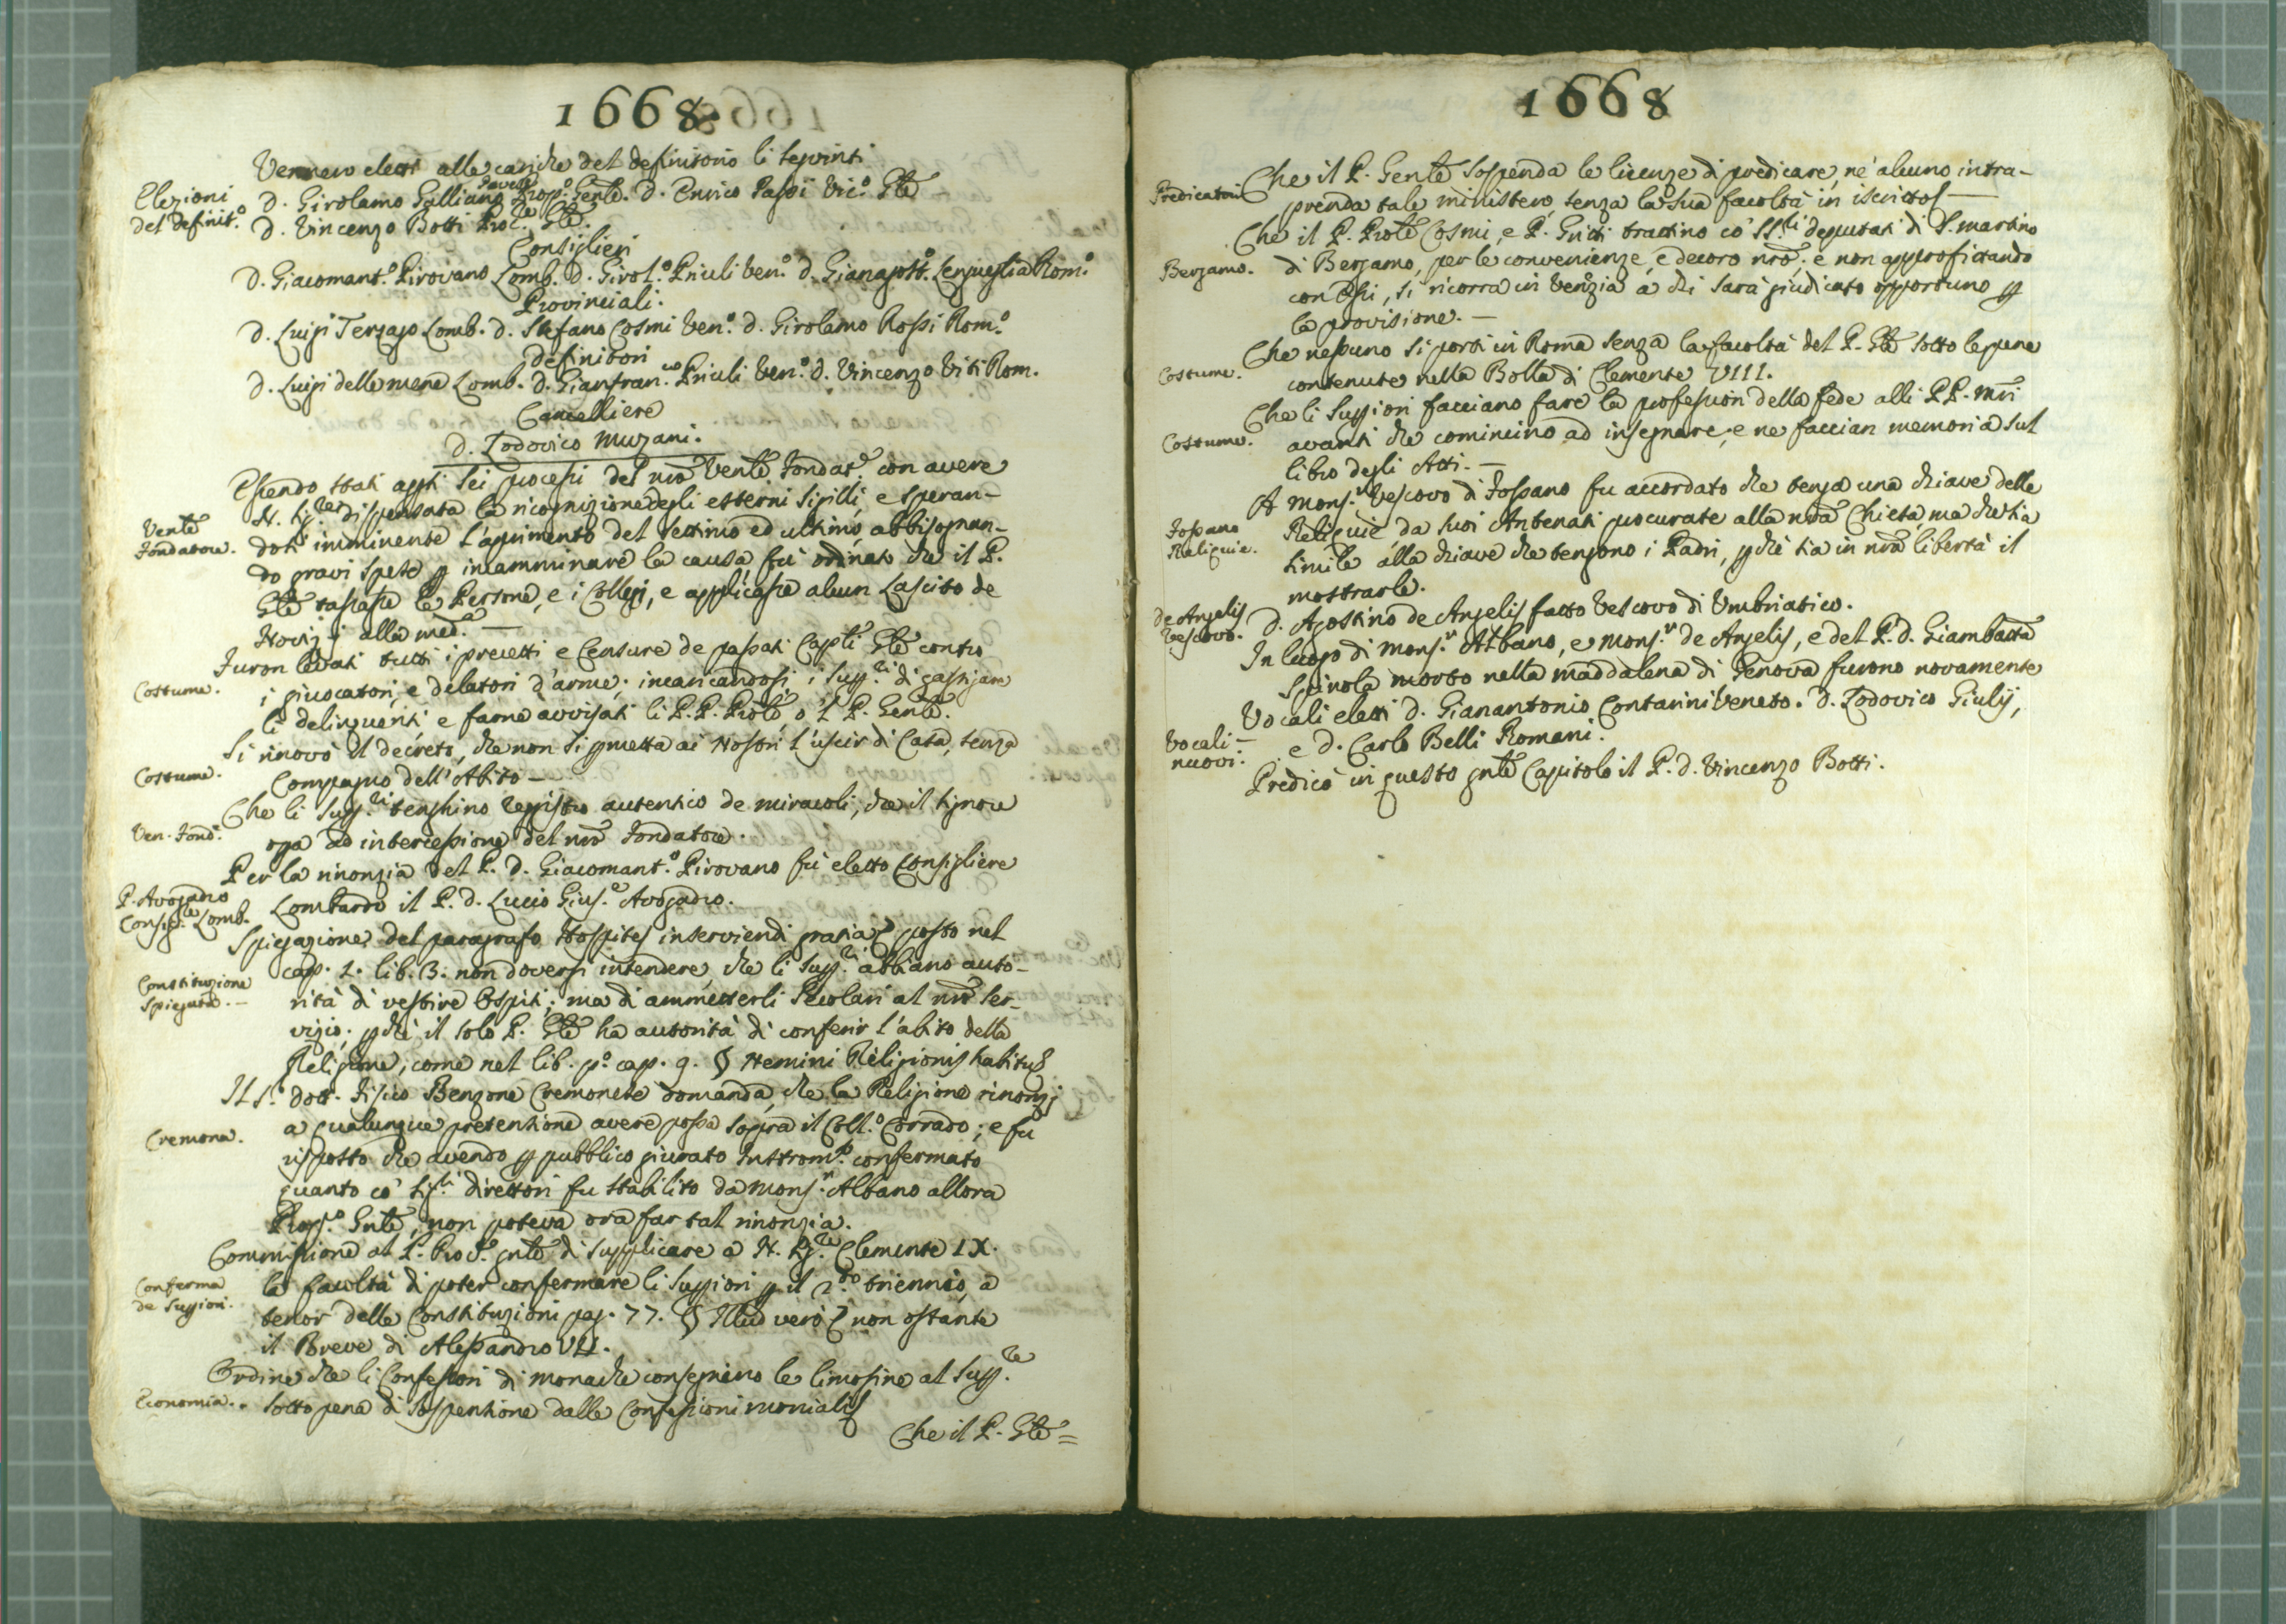 1668
Vennero eletti alle cariche del definitorio li seguenti
Elezioni
del definit.o
D. Girolamo Galliano Pavese Prop.o Genle. D. Enrico Passi Vic.o Gle
D. Vincenzo Botti Proc.re Gle.
Consiglieri
D. Giacomant.o Pirovano Lomb. D. Girol.o Priuli Ven.o D. Gianagost.o Lengueglia Rom.o
Provinciali.
D. Luigi Terzago Lomb. D. Stefano Cosmi Ven.o D. Girolamo Rossi Rom.o
definitori
D. Luigi della mena Lomb. D. Gianfran.co Priuli Ven.o D. Vincenzo Viti Rom.
Cancelliere
D. Lodovico Muzani.
Essendo stati apti sei processi del nro Vente Fondat.e con avere
N. Sig.re dispensata la ricognizione degli esterni sigilli, e speran-
Vente
Fondatore.
dosi imminente l'aprimento del settimo ed ultimo, abbisognan-
do gravi spese p incamminare la causa, fu ordinato che il P.
Gle tassasse le Persone, e i Collegj, e applicasse alcun Lascito de
Novizj alla med.a —
Furon levati tutti i precetti e Censure de passati Capli Gle contro
Costume.
i giuocatori, e delatori d'arme; incaricandosi i Supp.ri di gastigare
li delinquenti e farne avvisati li P.P. Prole, o 'l P. Genle.
Si rinovò il decreto, che non si pmetta ai Nostri l'uscir di Casa, senza
Costume.
Compagno dell'Abito —
Che li Supp.ri tenghino registro autentico de miracoli, che il Signore
Ven. Fond.e
opra ad intercessione del nro Fondatore.
Per la rinonzia del P. D. Giacomant.o Pirovano fu eletto Consigliere
P. Avogadro
Consig.re Lomb.
Lombardo il P. D. Lucio Gius.e Avogadro.
Spiegazione del paragrafo Hospites inserviendi gratia posto nel
cap. 1. lib. 3. non doversi intendere, che li Supp.ri abbiano auto-
Constituzione
Spiegata. —
rità di vestire Ospiti; ma di ammetterli Secolari al nro ser-
vizio; pchè il solo P. Gle ha autorità di conferir l'abito della
Religione, come nel lib. p.o cap. 9. § Nemini Religionis habitus
Il S.r dott. Fisico Benzone Cremonese domanda, che la Religione rinonzj
Cremona.
a qualunque pretensione avere possa sopra il Coll.o Corrado; e fu
risposto che avendo p pubblico giurato Instrom.to confermato
quanto co' Sig.ri direttori fu stabilito da Mons.r Albano allora
Prop.o Gnle, non poteva ora far tal rinonzia.
Commissione al P. Proc.e gnle di supplicare a N. Sig.re Clemente IX.
Conferma
de Suppiori.
la facoltà di poter confermare li Suppiori p il 2.do triennio, a
tenor delle Constituzioni pag. 77. § Illud verò non ostante
il Breve di Alessandro VII.
Ordine che li Confessori di monache consegnino le limosine al Supp.re
Economia.
sotto pena di sospensione dalle Confessioni monialis
Che il P. Gle =
1668
Che il P. Genle sospenda le licenze di predicare, ne alcuno intra-
Predicatori
prenda tale ministero, senza la sua facoltà in iscritto —
Che il P. Prole Cosmi, e P. Gritti trattino co' SS.ri deputati di S. Martino
Bergamo.
di Bergamo, per le convenienze, e decoro nro; e non approfittando
con essi, si ricorra in Venezia a chi sarà giudicato opportuno p
la provisione. —
Che nessuno si porti in Roma senza la facoltà del P. Gle sotto le pene
Costume.
contenute nella Bolla di Clemente VIII.
Che li Suppiori facciano fare la professione della fede alli PP. Mri
Costume.
avanti che comincino ad insegnare, e ne faccian memoria sul
libro degli Atti. —
A Mons.r Vescovo di Fossano fu accordato che tenga una chiave delle
Fossano
Reliquie.
Reliquie, da suoi Antenati procurate alla nra Chiesa, ma che sia
simile alla chiave che tengono i Padri, pchè sia in nra libertà il
mostrarle.
de Angelis
Vescovo.
D. Agostino de Angelis fatto Vescovo di Umbriatico.
In luogo di Mons.r Albano, e Mons.r de Angelis, e del P. D. Giambatta
Spinola morto nella Maddalena di Genova furono novamente
Vocali eletti D. Gianantonio Contarini Veneto. D. Lodovico Giulij,
Vocali
nuovi.
e D. Carlo Belli Romani.
Predicò in questo gnle Capitolo il P. D. Vincenzo Botti.